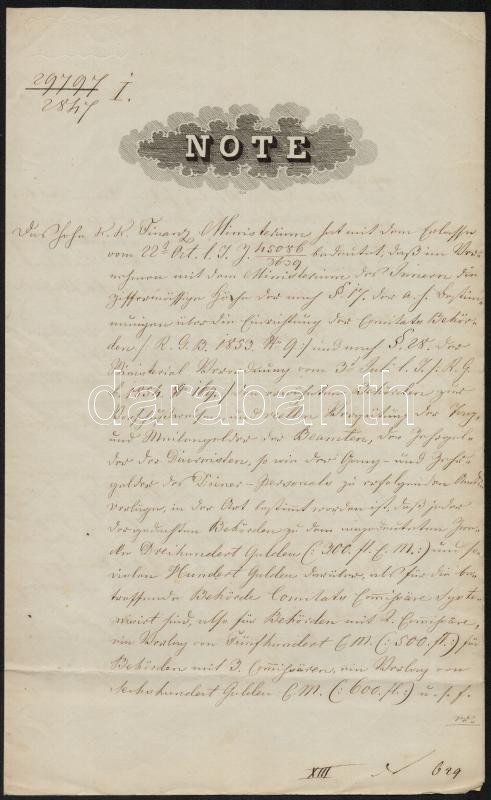 29797
2847 I.
NOTE
Das hohe K. K. Finanz Ministerium hat mit dem Erlasse
vom 22t Oct. l. J. Z. 45086/3639 bedeutet, daß im Ver-
nehmen mit dem Ministerium des Innern die
ziffermässige Höhe der nach § 17. der a. h. Bestim-
mungen über die Einrichtung der Comitats Behör-
den /: R. G. B. 1853. No 9:/ und nach § 28. der
Ministerial Verordnung vom 3t Juli l. J. /: R. G.
B. 1854. No 169:/ den Behörden zur
Vergütung der
und Meilengelder der Beamten, der
der der Diurnisten, so wie der Gang- und
gelder des Diener-Personals zu erfolgenden
verlages, in der Art bestimmt worden ist, daß jeder
der gedachten Behörden zu dem angedeuteten Zwe-
cke Dreihundert Gulden (: 300. fl. C. M. :) und so
vielen Hundert Gulden darüber, als für die be-
treffende Behörde Comitats Commissäre Syste-
misirt sind, also für Behörden mit 2. Commissäre,
ein Verlag von Fünfhundert C. M. (: 500. fl. :) für
Behörden mit 3. Commissären, ein Verlag von
Sechshundert Gulden C. M. (: 600. fl. :) u. s. f.
XIII 629
darabanth